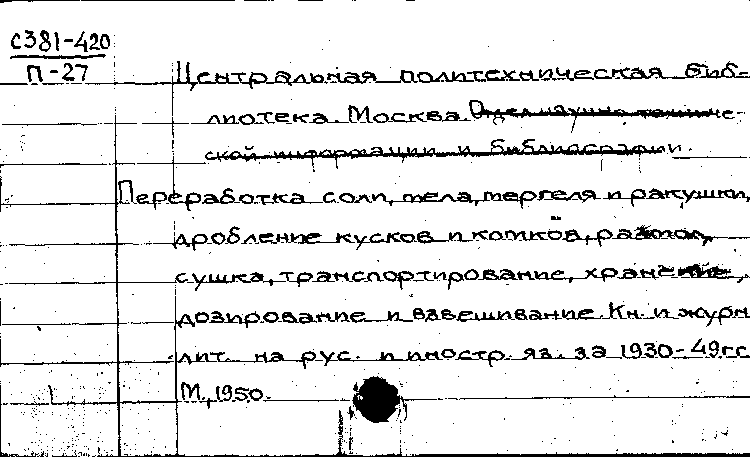 С381-420
П-27
Центральная политехническая биб-
лиотека. Москва. Отдел научно техниче-
ской информации и библиографии.
Переработка соли, мела, мергеля и ракушки,
дробление кусков и комков, размол,
сушка, транспортирование, хранение,
дозирование и взвешивание. Кн. и журн
лит. на рус. и иностр. яз. за 1930-49гг
М., 1950.